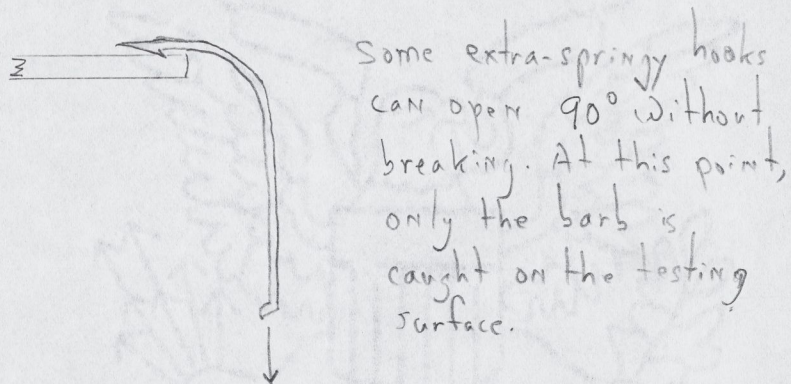 Some extra-springy hooks
can open 90° without
breaking. At this point,
only the barb is
caught on the testing
surface.